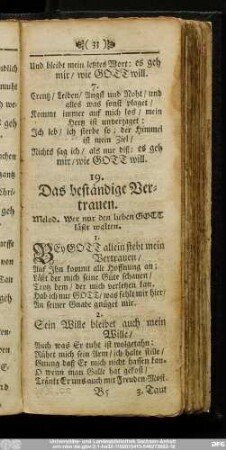 ❧( 31 )☙
Und bleibt mein letztes Wort: es geh
mir/ wie GOTT will.
7.
Creutz/ Leiden/ Angst und Noht/ und
alles was sonst plaget/
Kommt immer auf mich los/ mein
Hertz ist unverzaget:
Ich leb/ ich sterbe so; der Himmel
ist mein Ziel/
Nichts sag ich/ als nur diß: es geh
mir/ wie GOTT will.
19.
Das beständige Ver-
trauen.
Melod. Wer nur den lieben GOTT
läßt walten.
1.
BEy GOTT allein steht mein
Vertrauen/
Auf Ihn kommt alle Hoffnung an;
Läßt der mich seine Güte schauen/
Trotz dem/ der mich verletzen kan.
Hab ich nur GOTT/ was fehlt mir hier/
An seiner Gnade gnüget mir.
2.
Sein Wille bleibet auch mein
Wille/
Auch was Er thut ist wolgethan;
Rührt mich sein Arm/ ich halte stille/
Genung daß Er mich nicht hassen kan.
O wenn man Galle hat gekost/
Tränckt Er uns auch mit Freuden-Most.
3. Taut